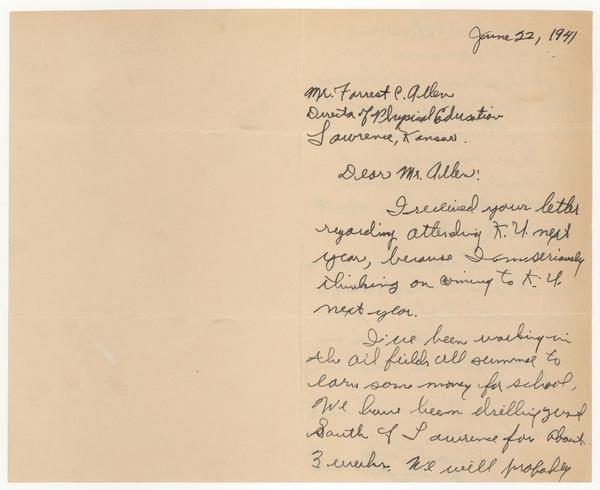 June 22, 1941
Mr. Forrest C. Allen
Director of Physical Education
Lawrence, Kansas.
Dear Mr. Allen:
I recieved your letter
regarding attending K.U. next
year, because I am seriously
thinking on coming to K.U.
next year.
I've been working in
the oil fields all summer to
earn some money for school.
We have been drilling just
South of Lawrence for about
3 weeks. We will probably